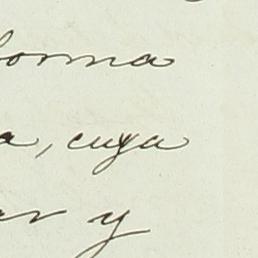 forma
a, cuya
ar y